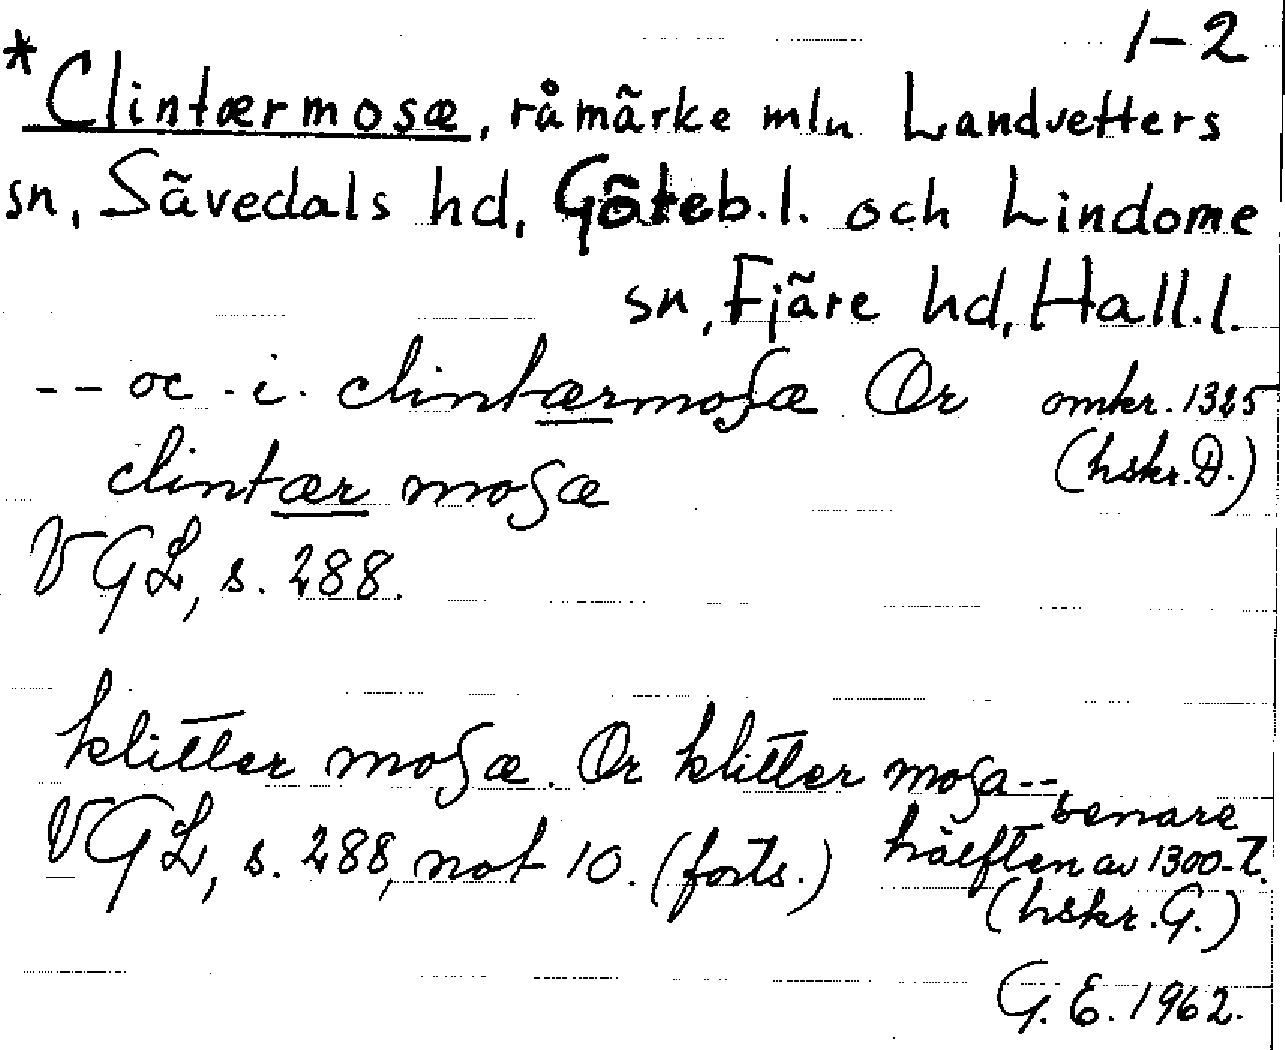 1-2
*Clintærmosæ, råmärke mln Landvetters
sn, Sävedals hd, Göteb.l. och Lindome
sn, Fjäre hd, Hall.l.
-- oc . i. clintærmosæ Or omkr. 1325
clintær mosæ (hskr. D.)
VGL, s. 288.
klitter mosæ. Or klitter mosa --, senare
VGL, s. 288, not 10. (forts.) hälften av 1300-t.
(hskr. G.)
G. E. 1962.